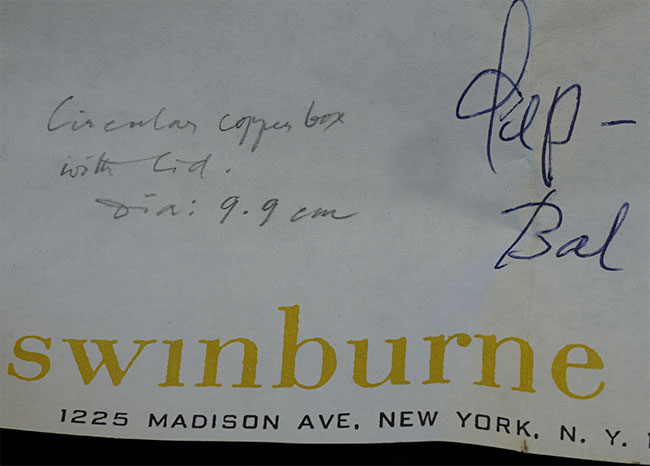 Circular copper box
with lid.
Dia: 9.9 cm
Dep –
Bal
swinburne
1225 MADISON AVE. NEW YORK, N. Y.